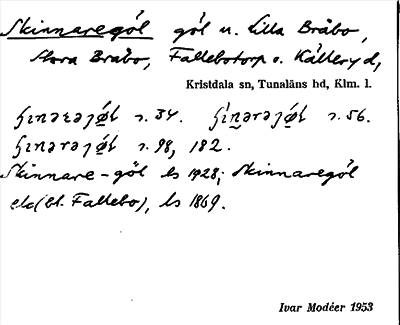 Skinnaregöl göl u. Lilla Bråbo,
Stora Bråbo, Fallebotorp o. Källeryd,
Kristdala sn, Tunaläns hd, Klm. l.
s. 34. s. 56.
s. 98, 182.
Skinnare-göl ls 1928; Skinnaregöl
ek (bl. Fallebo), ls 1869.
Ivar Modéer 1953